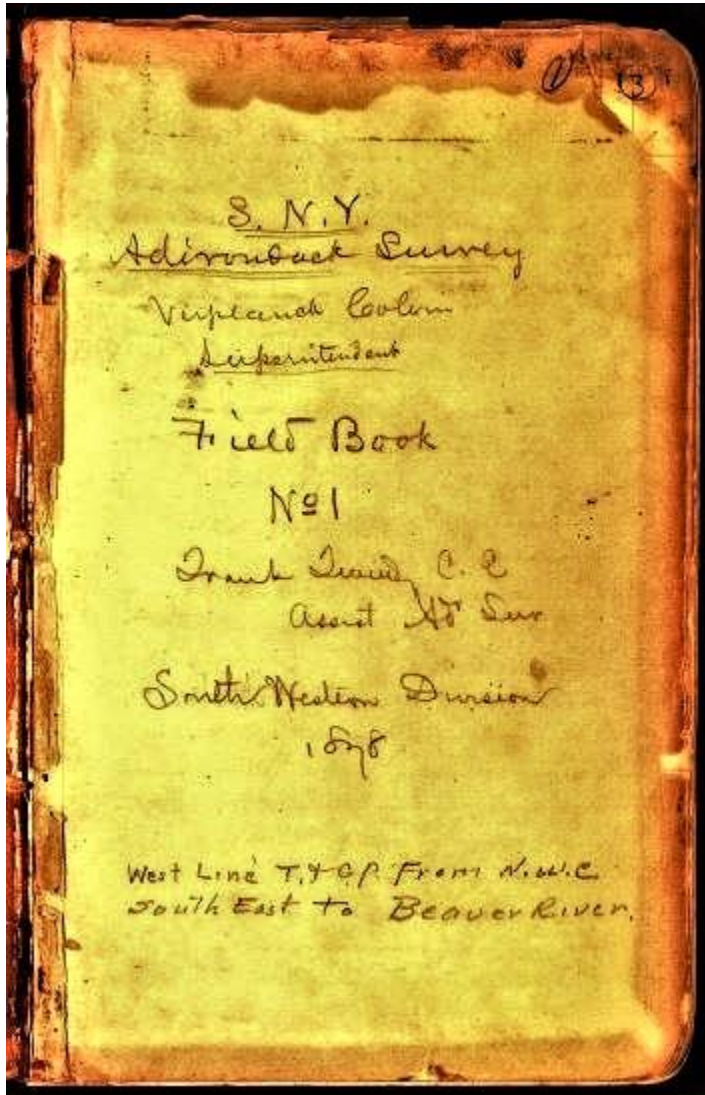 3
S. N. Y.
Adirondack Survey
Verplanck Colvin
Superintendent
Field Book
No 1
Frank Tweedy C. E
Assist Ad Sur
South Western Division
1878
West Line T. & C. P. From N. W. C.
South East to Beaver River.